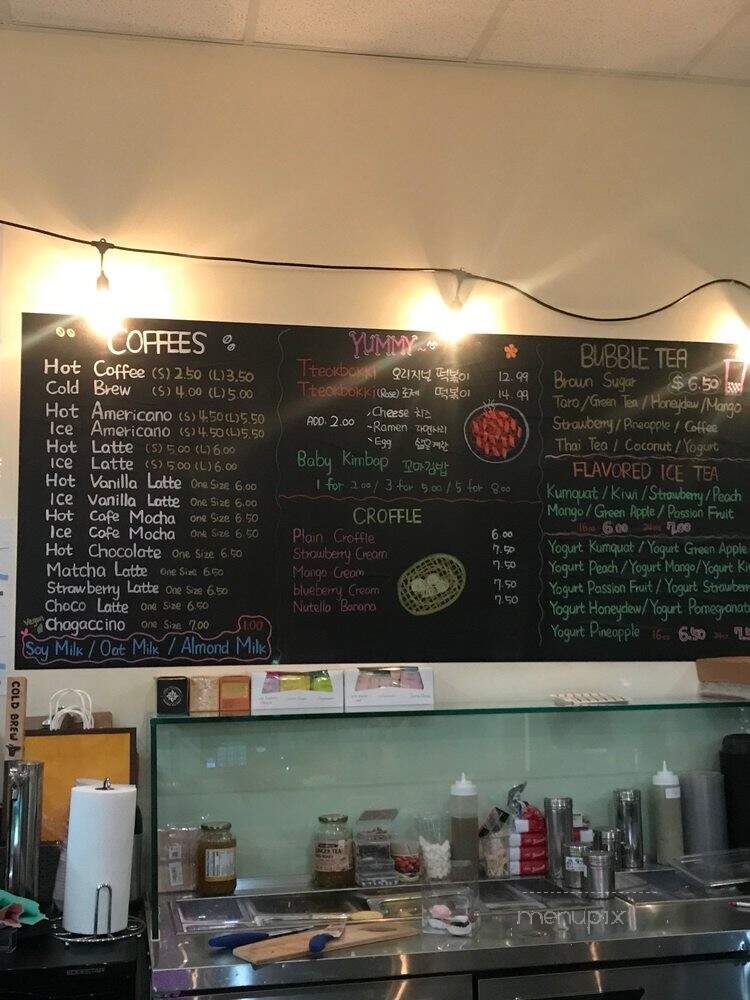 COFFEES
Hot Coffee (S) 2.50 (L) 3.50
Cold Brew (S) 4.00 (L) 5.00
Hot Americano (S) 4.50 (L) 5.50
Ice Americano (S) 4.50 (L) 5.50
Hot Latte (S) 5.00 (L) 6.00
Ice Latte (S) 5.00 (L) 6.00
Hot Vanilla Latte One Size 6.00
Ice Vanilla Latte One Size 6.00
Hot Cafe Mocha One Size 6.50
Ice Cafe Mocha One Size 6.50
Hot Chocolate One Size 6.50
Matcha Latte One Size 6.50
Strawberry Latte One Size 6.50
Choco Latte One Size 6.50
Vegan
Chagaccino One Size 7.00
1.00
Soy Milk / Oat Milk / Almond Milk
YUMMY~
Tteokbokki 오리지널 떡볶이 12.99
Tteokbokki (Rose) 로제 떡볶이 14.99
ADD. 2.00
Cheese 치즈
Ramen 라면사리
Egg 삶은계란
Baby Kimbap 꼬마김밥
1 for 2.00 / 3 for 5.00 / 5 for 8.00
CROFFLE
Plain Croffle 6.00
Strawberry Cream 7.50
Mango Cream 7.50
blueberry Cream 7.50
Nutella Banana 7.50
BUBBLE TEA
Brown Sugar $6.50
Taro / Green Tea / Honeydew / Mango
Strawberry / Pineapple / Coffee
Thai Tea / Coconut / Yogurt
FLAVORED ICE TEA
Kumquat / Kiwi / Strawberry / Peach
Mango / Green Apple / Passion Fruit
16oz 6.00 24oz 7.00
Yogurt Kumquat / Yogurt Green Apple
Yogurt Peach / Yogurt Mango / Yogurt Ki
Yogurt Passion Fruit / Yogurt Strawber
Yogurt Honeydew / Yogurt Pomegranat
Yogurt Pineapple 16oz 6.50 24oz 7.5
COLD BREW
GINGER TEA
menupix